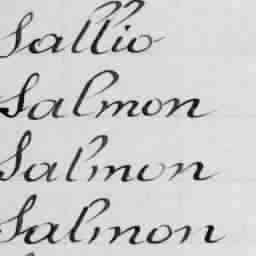 Sallio
Salmon
Salmon
Salmon